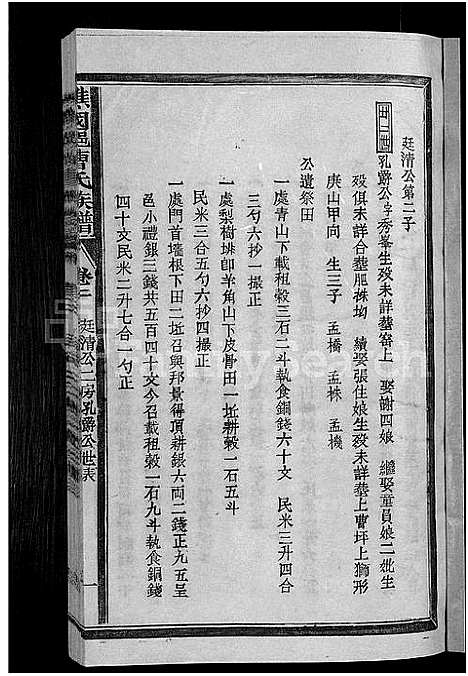 廷清公第二子
廿二世 孔爵公字秀峯生歿未詳塟窑上 娶謝四娘 繼娶童員娘二妣生
歿俱未詳合塟肥袾坳 續娶張住娘生歿未詳塟上曹坪上獅形
庚山甲向 生三子 孟橋 孟株 孟機
公遺祭田
一處青山下載租榖三石二斗執食銅錢六十文 民米三升四合
三勺六抄一撮正
一處梨樹排卽羊角山下皮骨田一坵耕榖一石五斗
民米三合五勺六抄四撮正
一處門首墻根下田二坵召與邦景得頂耕銀六両二錢正九五呈
邑小禮銀三錢共五百四十文今召載租榖一石九斗執食銅錢
四十文民米二升七合一勺正
譙國邑曹氏族譜 卷二 廷清公二房孔爵公世表 一